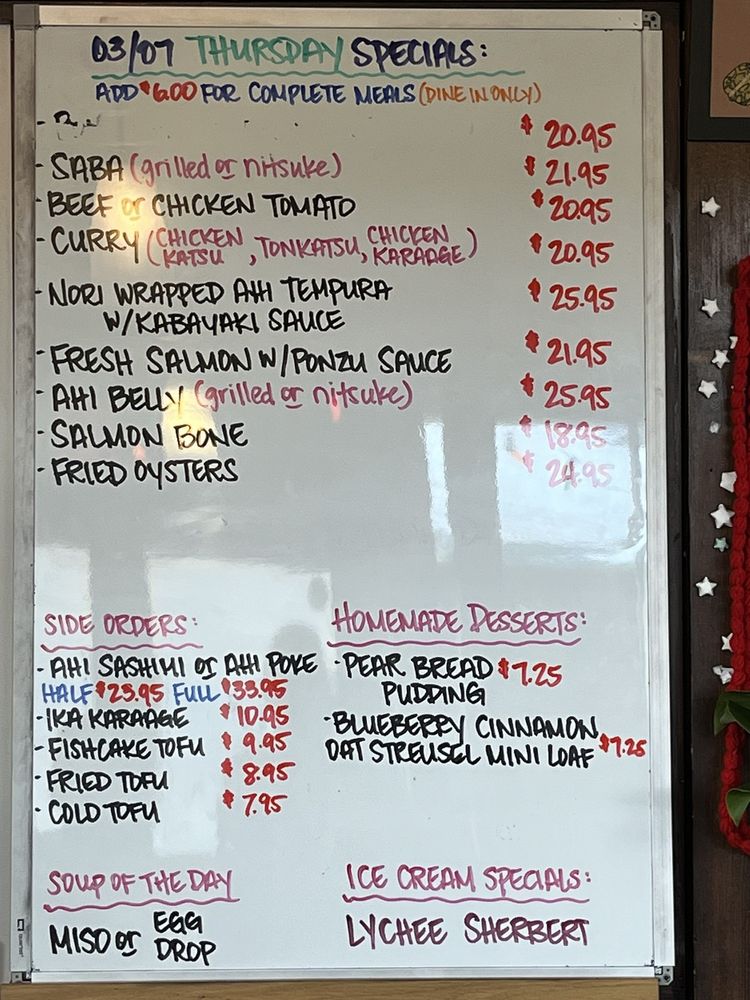 03/07 THURSDAY SPECIALS:
ADD $6.00 FOR COMPLETE MEALS (DINE IN ONLY)
- $20.95
- SABA (grilled or nitsuke) $21.95
- BEEF or CHICKEN TOMATO $20.95
- CURRY (CHICKEN KATSU, TONKATSU, CHICKEN KARAAGE) $20.95
- NORI WRAPPED AHI TEMPURA $25.95
W/KABAYAKI SAUCE
- FRESH SALMON W/PONZU SAUCE $21.95
- AHI BELLY (grilled or nitsuke) $25.95
- SALMON BONE $18.95
- FRIED OYSTERS $24.95
SIDE ORDERS:
- AHI SASHIMI or AHI POKE
HALF $23.95 FULL $33.95
- IKA KARAAGE $10.95
- FISHCAKE TOFU $9.95
- FRIED TOFU $8.95
- COLD TOFU $7.95
HOMEMADE DESSERTS:
- PEAR BREAD $7.25
PUDDING
- BLUEBERRY CINNAMON
OAT STREUSEL MINI LOAF $7.25
SOUP OF THE DAY
MISO or EGG DROP
ICE CREAM SPECIALS:
LYCHEE SHERBERT